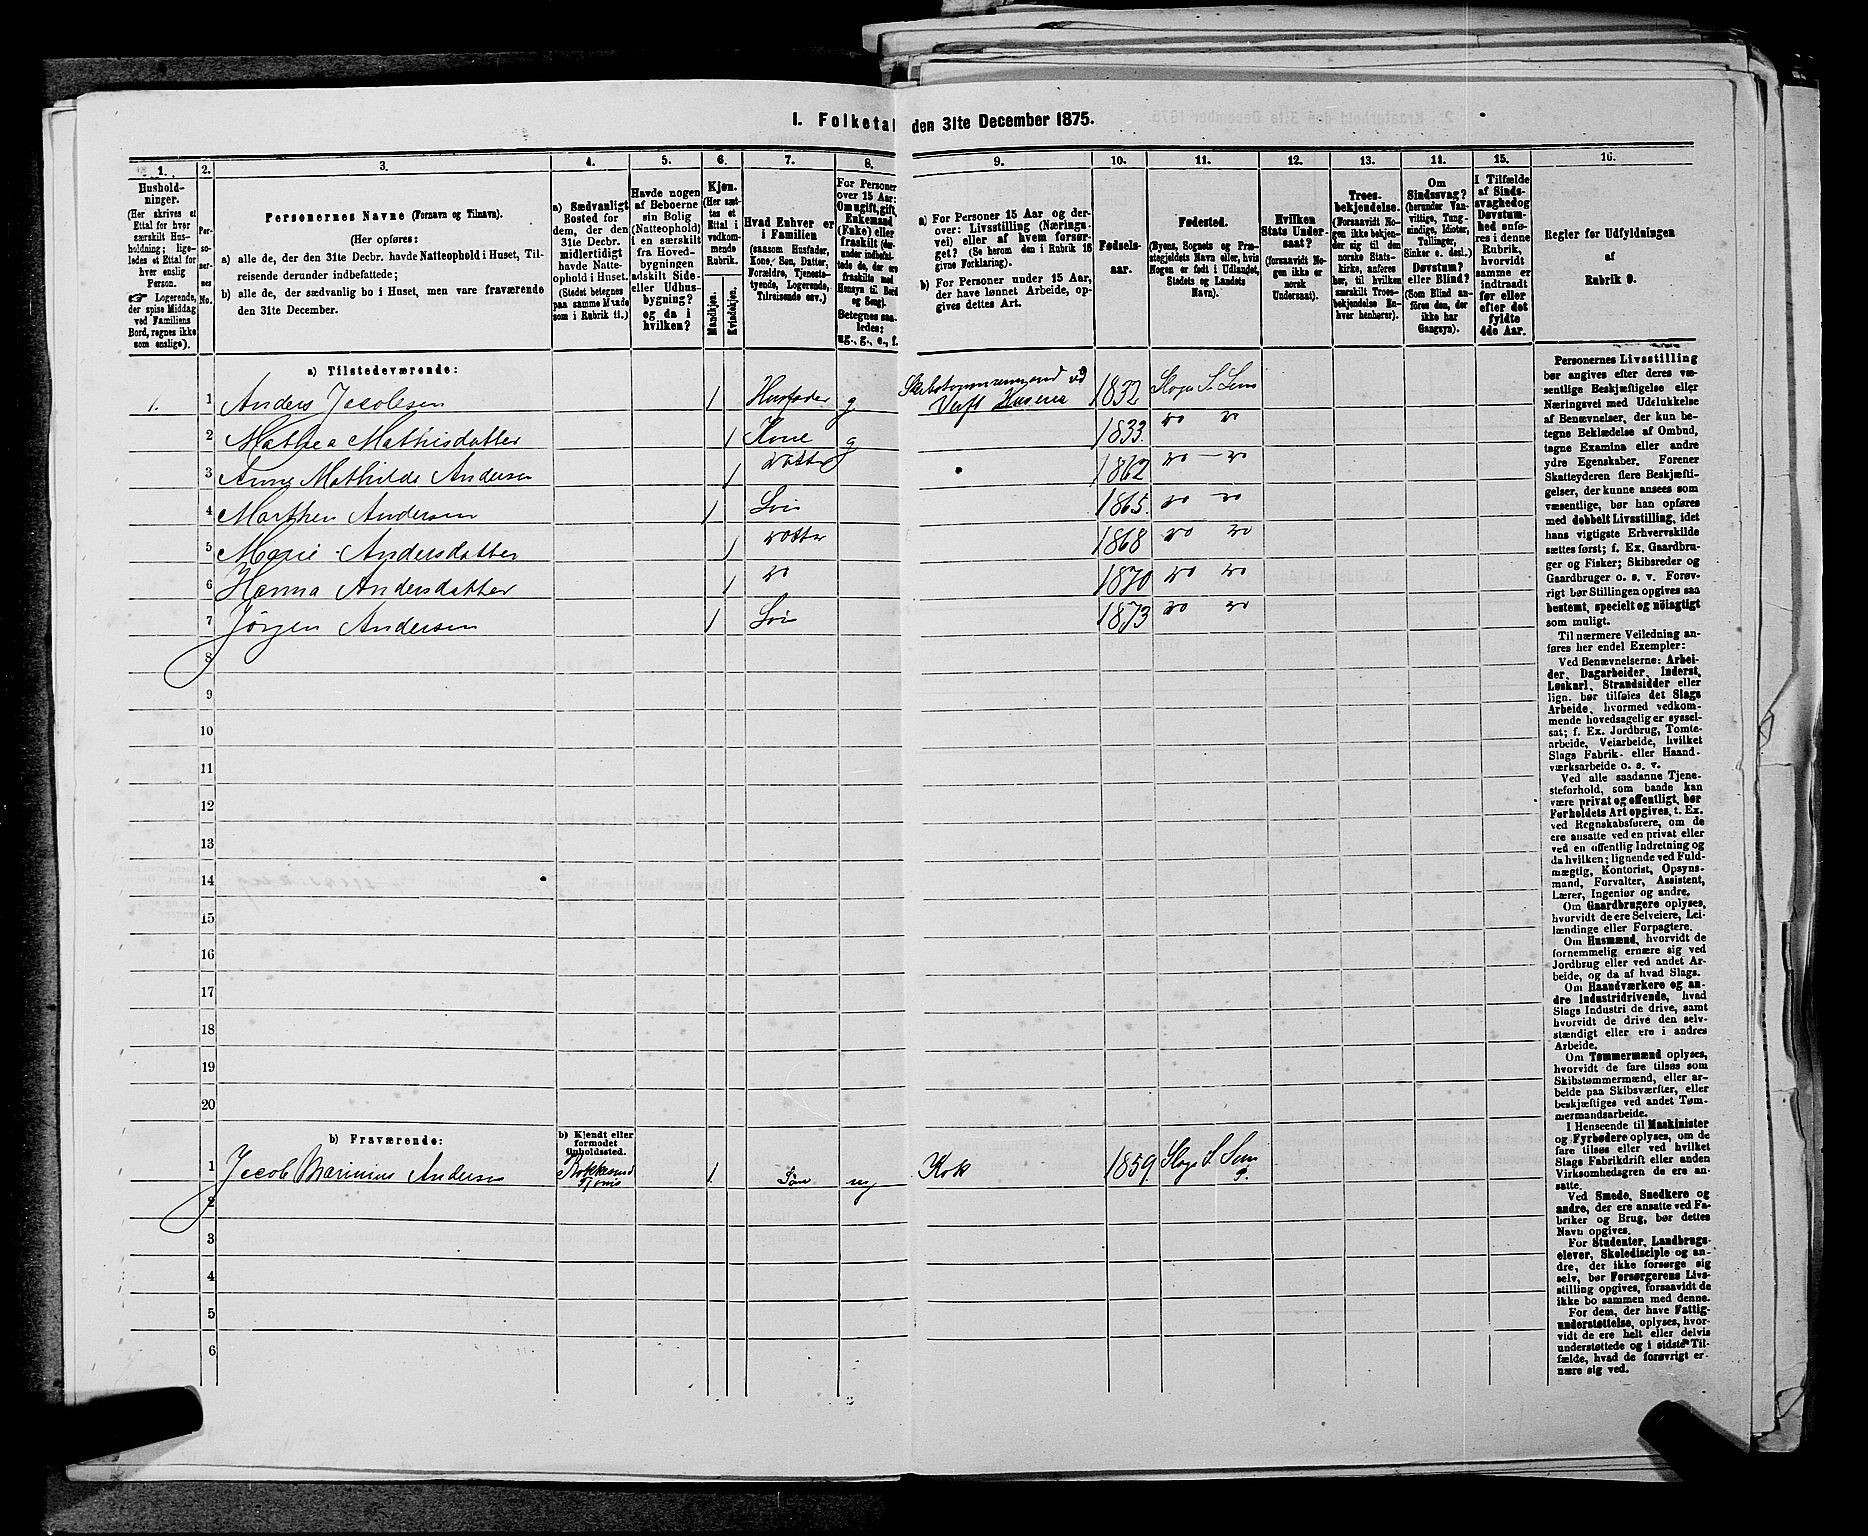 I. Folketal den 31te December 1875.
1. 2. 3. 4. 5. 6. 7. 8. 9. 10. 11. 12. 13. 14. 15. 16.
Hushold-
ninger.
(Her skrives et
Ettal for hver
særskilt Hus-
holdning; lige-
ledes et Ettal for
hver enslig
Person.
☞ Logerende,
der spise Middag
ved Familiens
Bord, regnes ikke
som enslige).
Per-
so-
ner-
nes
No.
Personernes Navne (Fornavn og Tilnavn).
(Her opføres:
a) alle de, der den 31te Decbr. havde Natteophold i Huset, Til-
reisende derunder indbefattede;
b) alle de, der sædvanlig bo i Huset, men vare fraværende
den 31te December.
a) Sædvanligt
Bosted for
dem, der den
31te Decbr.
midlertidigt
havde Natte-
ophold i Huset.
(Stedet betegnes
paa samme Maade
som i Rubrik 11.)
Havde nogen
af Beboerne
sin Bolig
(Natteophold)
i en særskilt
fra Hoved-
bygningen
adskilt Side-
eller Udhus-
bygning?
og da i
hvilken?
Kjøn.
(Her sæt-
tes et
Ettal i
vedkom-
mende
Rubrik.
Mandkjøn.
Kvindekjøn.
Hvad Enhver er
i Familien
(saasom Husfader,
Kone, Søn, Datter,
Forældre, Tjeneste-
tyende, Logerende,
Tilreisende osv.)
For Personer
over 15 Aar:
Om ugift, gift,
Enkemand
(Enke) eller
fraskilt (der-
under indbefat-
tede de, der ere
fraskilte med
Hensyn til Bord
og Seng).
Betegnes saa-
ledes:
ug., g., e., f.
a) For Personer 15 Aar og der-
over: Livsstilling (Nærings-
vei) eller af hvem forsør-
get? (Se herom den i Rubrik 16
givne Forklaring).
b) For Personer under 15 Aar,
der have lønnet Arbeide, op-
gives dettes Art.
Fødsels-
aar.
Fødested.
(Byens, Sognets og Præ-
stegjeldets Navn eller, hvis
Nogen er født i Udlandet,
Stedets og Landets
Navn).
Hvilken
Stats Under-
saat?
(forsaavidt No-
gen ikke er
norsk
Undersaat).
Troes-
bekjendelse.
(Forsaavidt No-
gen ikke bekjen-
der sig til den
norske Stats-
kirke, anføres
her, til hvilken
særskilt Troes-
bekjendelse En-
hver henhører).
Om
Sindssvag?
(herunder Van-
vittige, Tung-
sindige, Idioter,
Tullinger,
Sinker o. desl.)
Døvstum?
eller Blind?
(Som Blind an-
føres den, der
ikke har
Gangsyn).
I Tilfælde
af Sinds-
svaghed og
Døvstum-
hed anfø-
res i denne
Rubrik,
hvorvidt
samme er
indtraadt
før eller
efter det
fyldte
4de Aar.
Regler for Udfyldningen
af
Rubrik 9.
a) Tilstedeværende:
1. 1 Anders Jacobsen 1 Husfader g Skibstømmermand ved Verft 1832
2 Mathea Mathisdatter 1 Kone g 1833 do do
3 Anne Mathilde Andersen 1 Datter 1862 do — do
4 Marthen Andersen 1 Søn 1865 do do
5 Marie Andersdatter 1 Datter 1868 do do
6 Hanna Andersdatter 1 do 1870 do do
7 Jørgen Andersen 1 Søn 1873 do do
8
9
10
11
12
13
14
15
16
17
18
19
20
b) Fraværende:
b) Kjendt eller
formodet
Opholdssted.
1 Jacob Marinius Andersen 1 Søn ug Kok 1859
2
3
4
5
6
Personernes Livsstilling
bør angives efter deres væ-
sentlige Beskjæftigelse eller
Næringsvei med Udelukkelse
af Benævnelser, der kun be-
tegne Beklædelse af Ombud,
tagne Examina eller andre
ydre Egenskaber. Forener
Skatteyderen flere Beskjæfti-
gelser, der kunne ansees som
væsentlige, bør han opføres
med dobbelt Livsstilling, idet
hans vigtigste Erhvervskilde
sættes først; f. Ex. Gaardbru-
ger og Fisker; Skibsreder og
Gaardbruger o. s. v. Forøv-
rigt bør Stillingen opgives saa
bestemt, specielt og nöiagtigt
som muligt.
Til nærmere Veiledning an-
føres her endel Exempler:
Ved Benævnelserne: Arbei-
der, Dagarbeider, Inderst,
Løskarl, Strandsidder eller
lign. bør tilføies det Slags
Arbeide, hvormed vedkom-
mende hovedsagelig er syssel-
sat; f. Ex. Jordbrug, Tomte-
arbeide, Veiarbeide, hvilket
Slags Fabrik- eller Haand-
værksarbeide o. s. v.
Ved alle saadanne Tjene-
steforhold, som baade kan
være privat og offentligt, bør
Forholdets Art opgives, t. Ex.
ved Regnskabsførere, om de
ere ansatte ved en privat eller
ved en offentlig Indretning og
da hvilken; lignende ved Fuld-
mægtig, Kontorist, Opsyns-
mand, Forvalter, Assistent,
Lærer, Ingeniør og andre.
Om Gaardbrugere oplyses,
hvorvidt de ere Selveiere, Lei-
lændinge eller Forpagtere.
Om Husmænd, hvorvidt de
fornemmelig ernære sig ved
Jordbrug eller ved andet Ar-
beide, og da af hvad Slags.
Om Haandværkere og an-
dre Industridrivende, hvad
Slags Industri de drive, samt
hvorvidt de drive den selv-
stændigt eller ere i andres
Arbeide.
Om Tømmermænd oplyses,
hvorvidt de fare tilsøs som
Skibstømmermænd, eller ar-
beide paa Skibsværfter, eller
beskjæftiges ved andet Tøm-
mermandsarbeide.
I Henseende til Maskinister
og Fyrbødere oplyses, om de
fare tilsøs eller ved hvilket
Slags Fabrikdrift eller anden
Virksomhedsgren de ere an-
satte.
Ved Smede, Snedkere og
andre, der ere ansatte ved Fa-
briker og Brug, bør dettes
Navn opgives.
For Studenter, Landbrugs-
elever, Skoledisciple og an-
dre, der ikke forsørge sig
selv, bør Forsørgerens Livs-
stilling opgives, forsaavidt de
ikke bo sammen med denne.
For dem, der have Fattig-
understøttelse, oplyses, hvor-
vidt de ere helt eller delvis
understøttede og i sidste Til-
fælde, hvad de forøvrigt er-
nære sig ved.